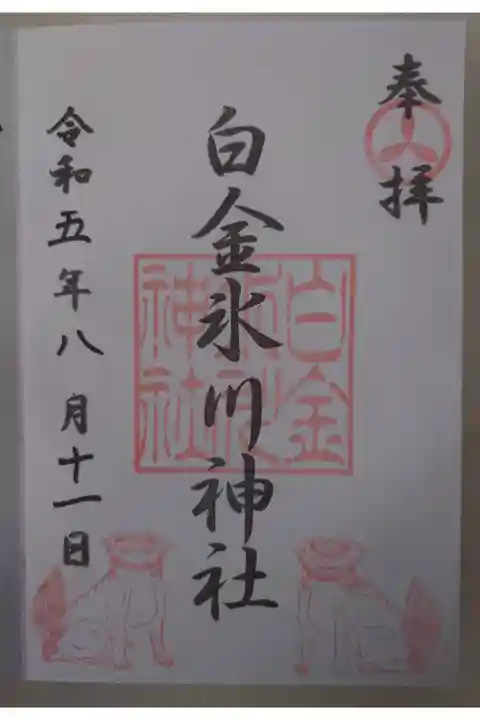 奉拝
白金氷川神社
白金
氷川
神社
令和五年八月十一日